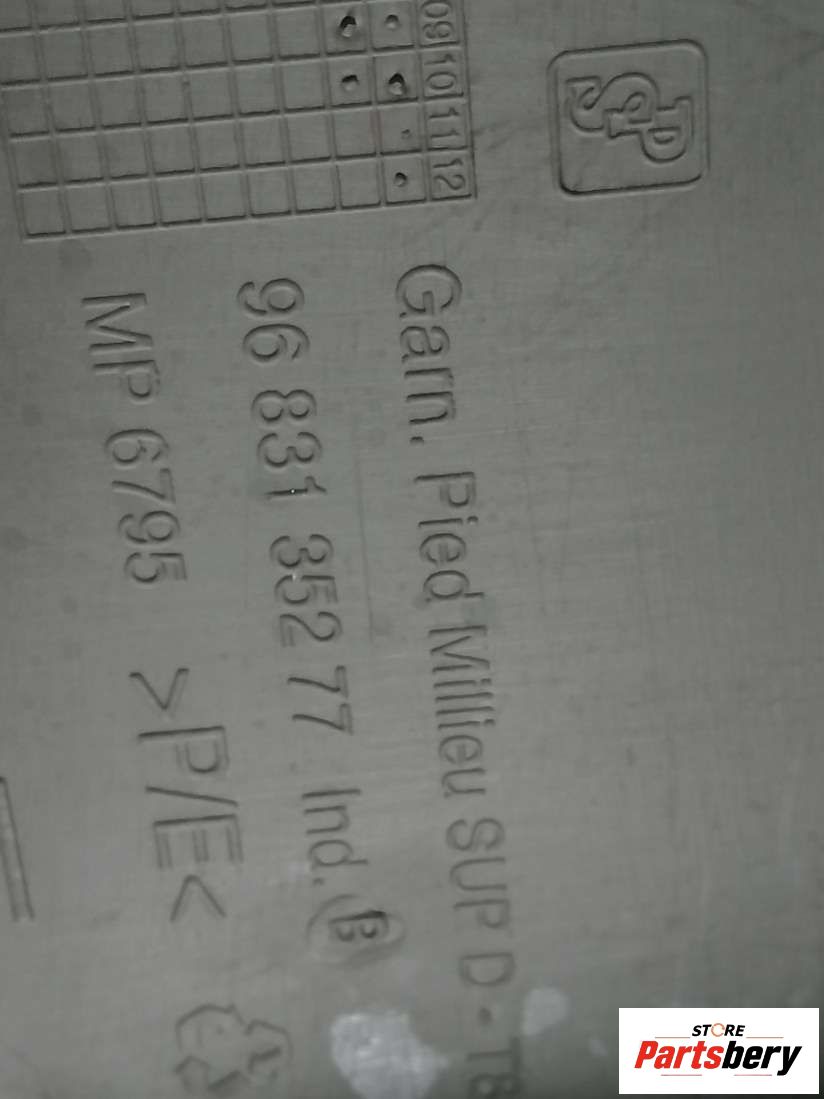 09
10
11
12
PSA
Garn. Pied Millieu SUP D - T8
96 831 352 77 Ind. B
MP 6795 >P/E<
STORE
Partsbery